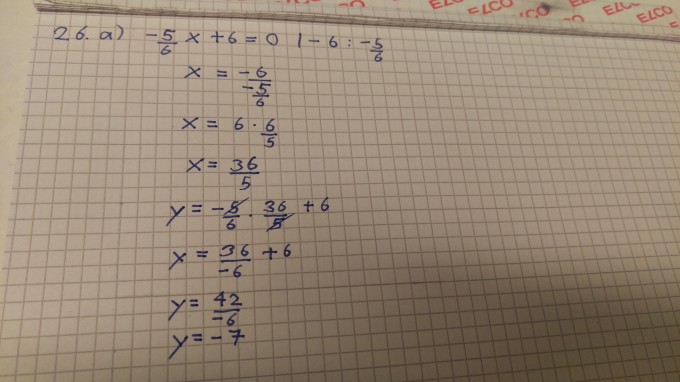 ELCO ELCO ELCO
26. a) -5/6 x + 6 = 0 | - 6 : -5/6
x = -6/(-5/6)
x = 6 · 6/5
x = 36/5
y = -5/6 · 36/5 + 6
x = 36/-6 + 6
y = 42/-6
y = - 7